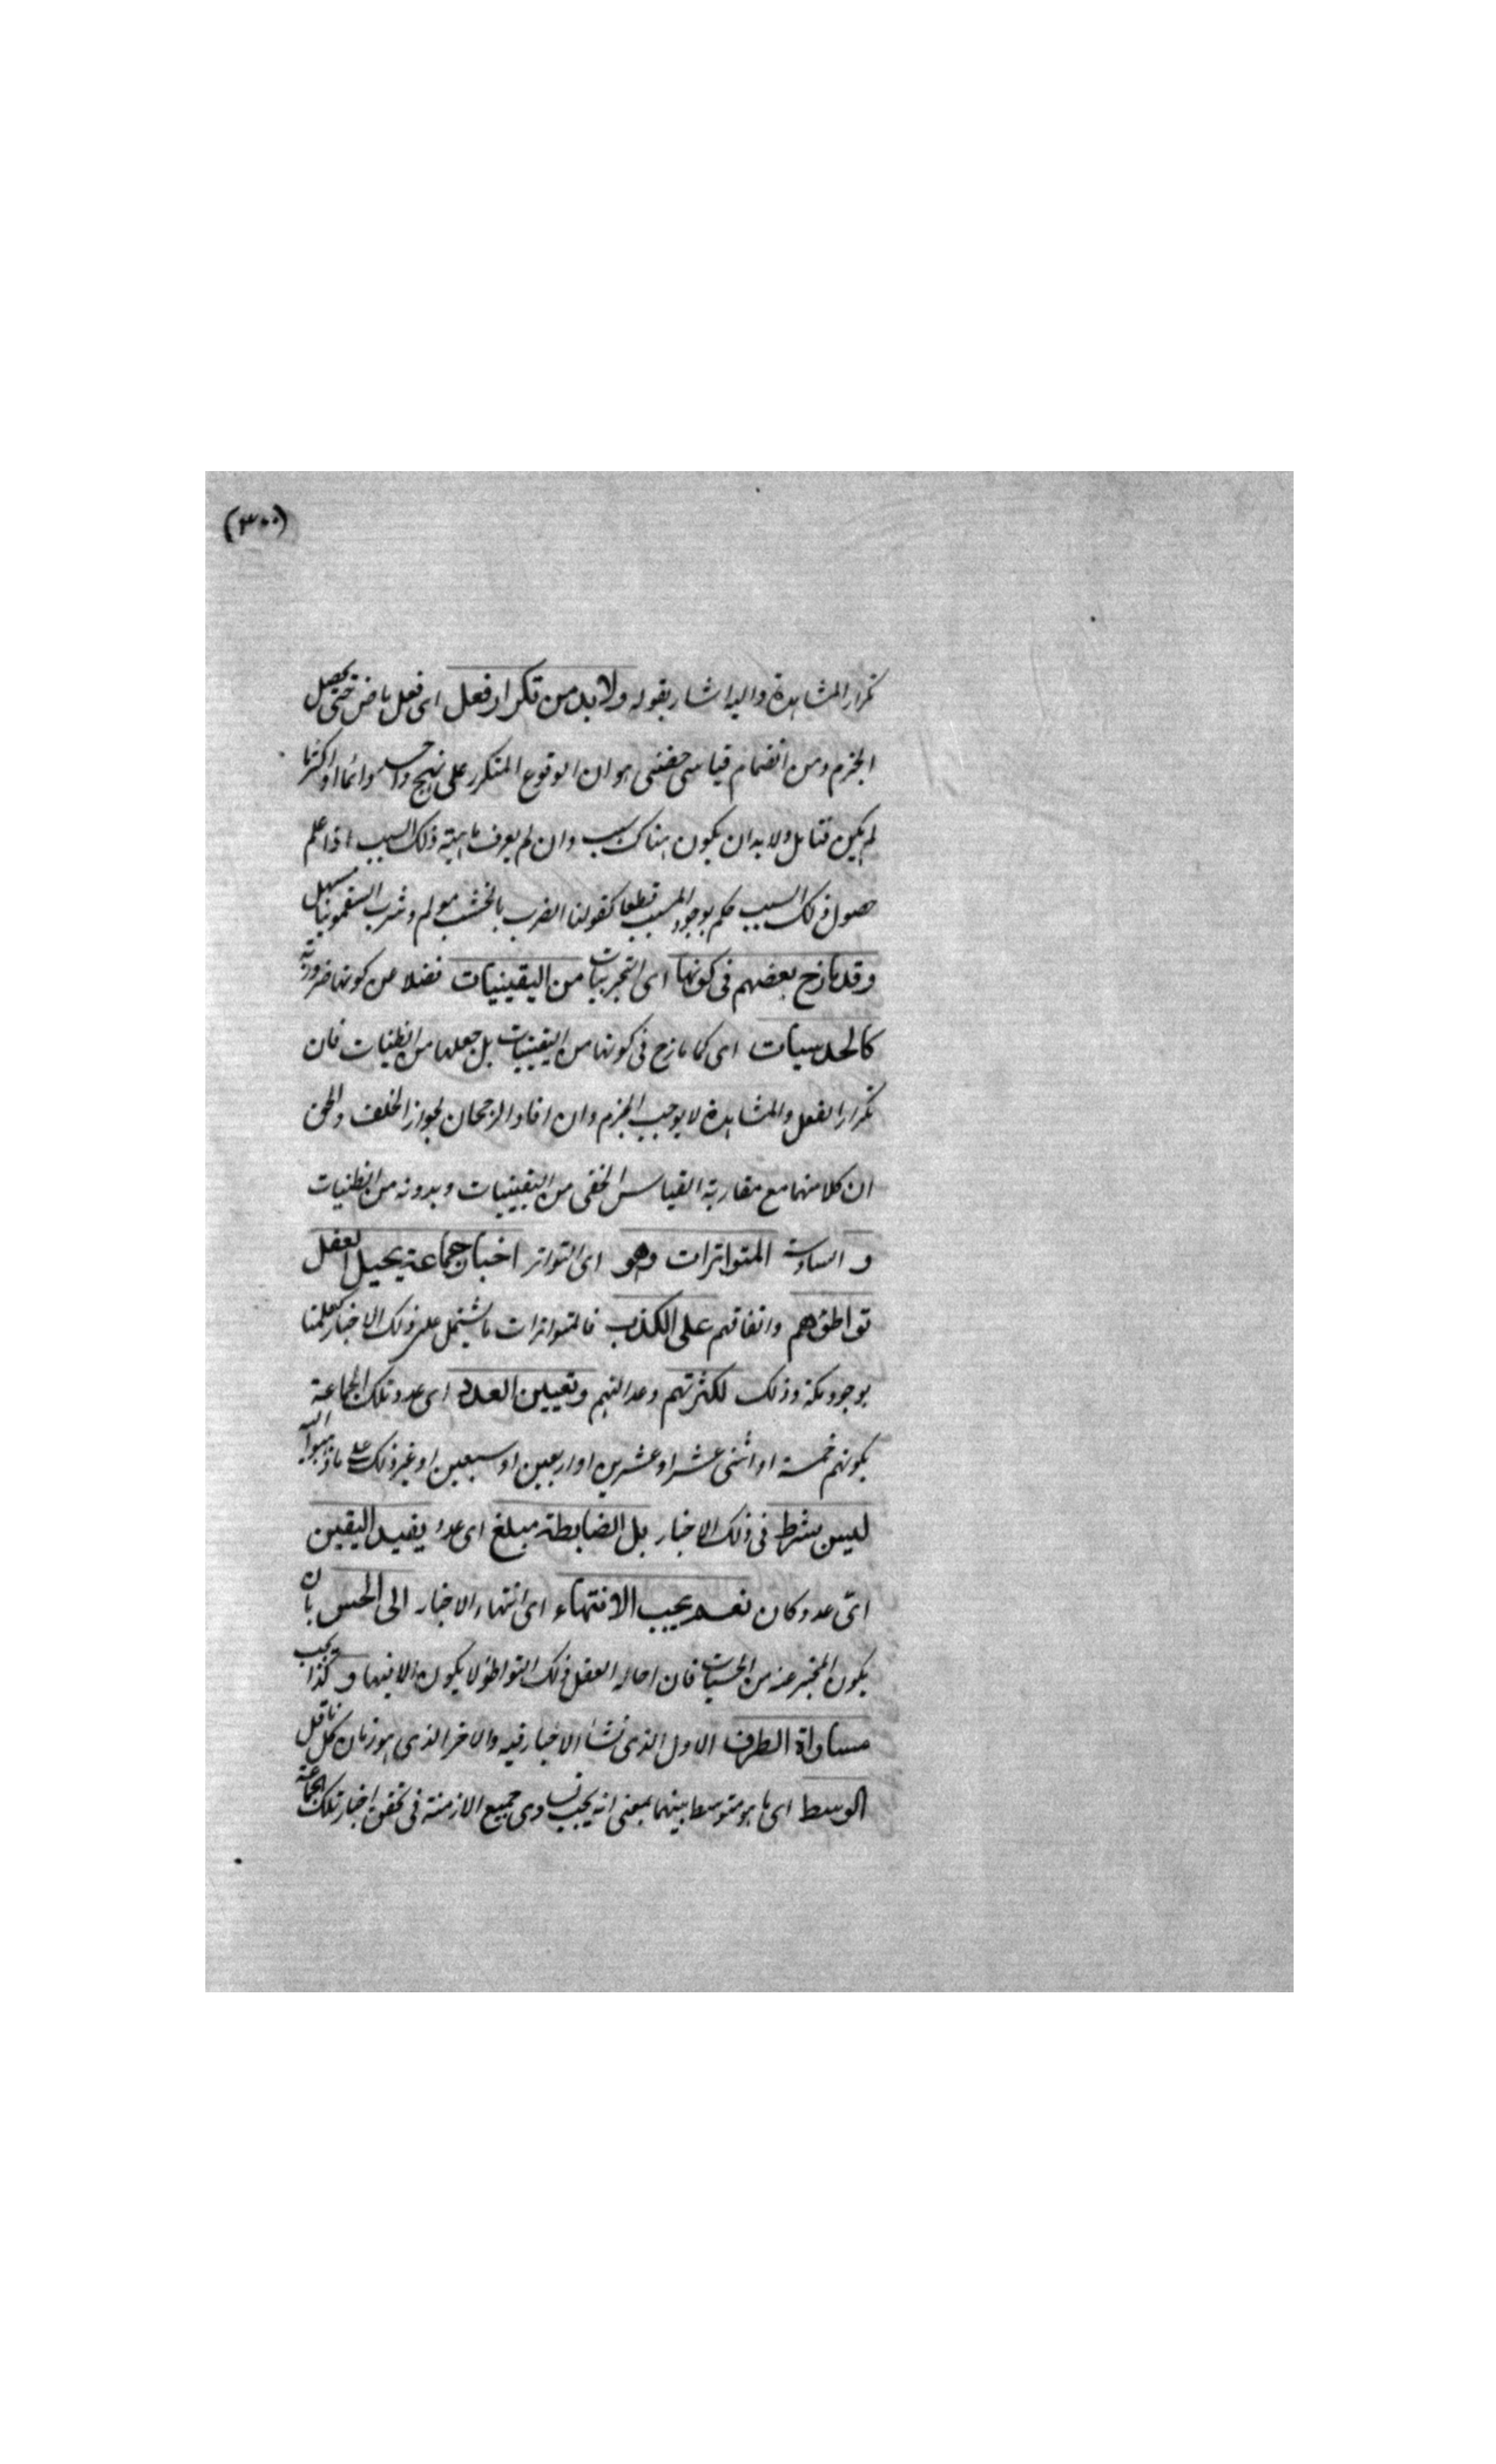 (٣٠٠)
تكرار المشاهدة واليه اشار بقوله ولا بد من تكرار فعل اى فعل ما حتى يحصل
الجزم ومن انضمام قياسى خفى هو ان الوقوع المتكرر على نهج واحد دائما او اكثريا
لم يكن ولا بد ان يكون هناك سبب وان لم يعرف ماهية ذلك السبب اذا علم
حصول ذلك السبب حكم بوجود المسبب قطعا كقولنا الضرب بالخشب مولم وشرب السقمونيا مسهل
وقد نازع بعضهم فى كونها اى التجربيات من اليقينيات فضلا عن كونها ضرورية
كالحدسيات اى كما نازع فى كونها من اليقينيات بل جعلها من الظنيات فان
تكرار الفعل والمشاهدة لا يوجب الجزم وان افاد الرجحان لجواز التخلف والحق
ان كلا منهما مع مقارنة القياس الخفى من اليقينيات وبدونه من الظنيات
و السادسة المتواترات وهو اى التواتر اخبار جماعة يحيل العقل
تواطؤهم واتفاقهم على الكذب فالمتواترات ما يشتمل على ذلك الاخبار كعلمنا
بوجود مكة وذلك لكثرتهم وعدالتهم وتعيين العدد اى عدد تلك الجماعة
بكونهم خمسة او اثنى عشر او عشرين او اربعين او سبعين او غير ذلك على ما ذهبوا اليه
ليس بشرط فى ذلك الاخبار بل الضابطة مبلغ اى عدد يفيد اليقين
اىّ عدد كان نعم يجب الانتهاء اى انتهاء الاخبار الى الحس بان
يكون المخبر عنه من الحسيات فان احالة العقل ذلك التواطؤ لا يكون الا فيها و كذا يجب
مساواة الطرف الاول الذى نشأ الاخبار فيه والاخر الذى هو زمان كل ناقل
الوسط اى ما هو متوسط بينهما بمعنى انه يجب تساوى جميع الازمنة فى تحقق اخبار تلك الجماعة